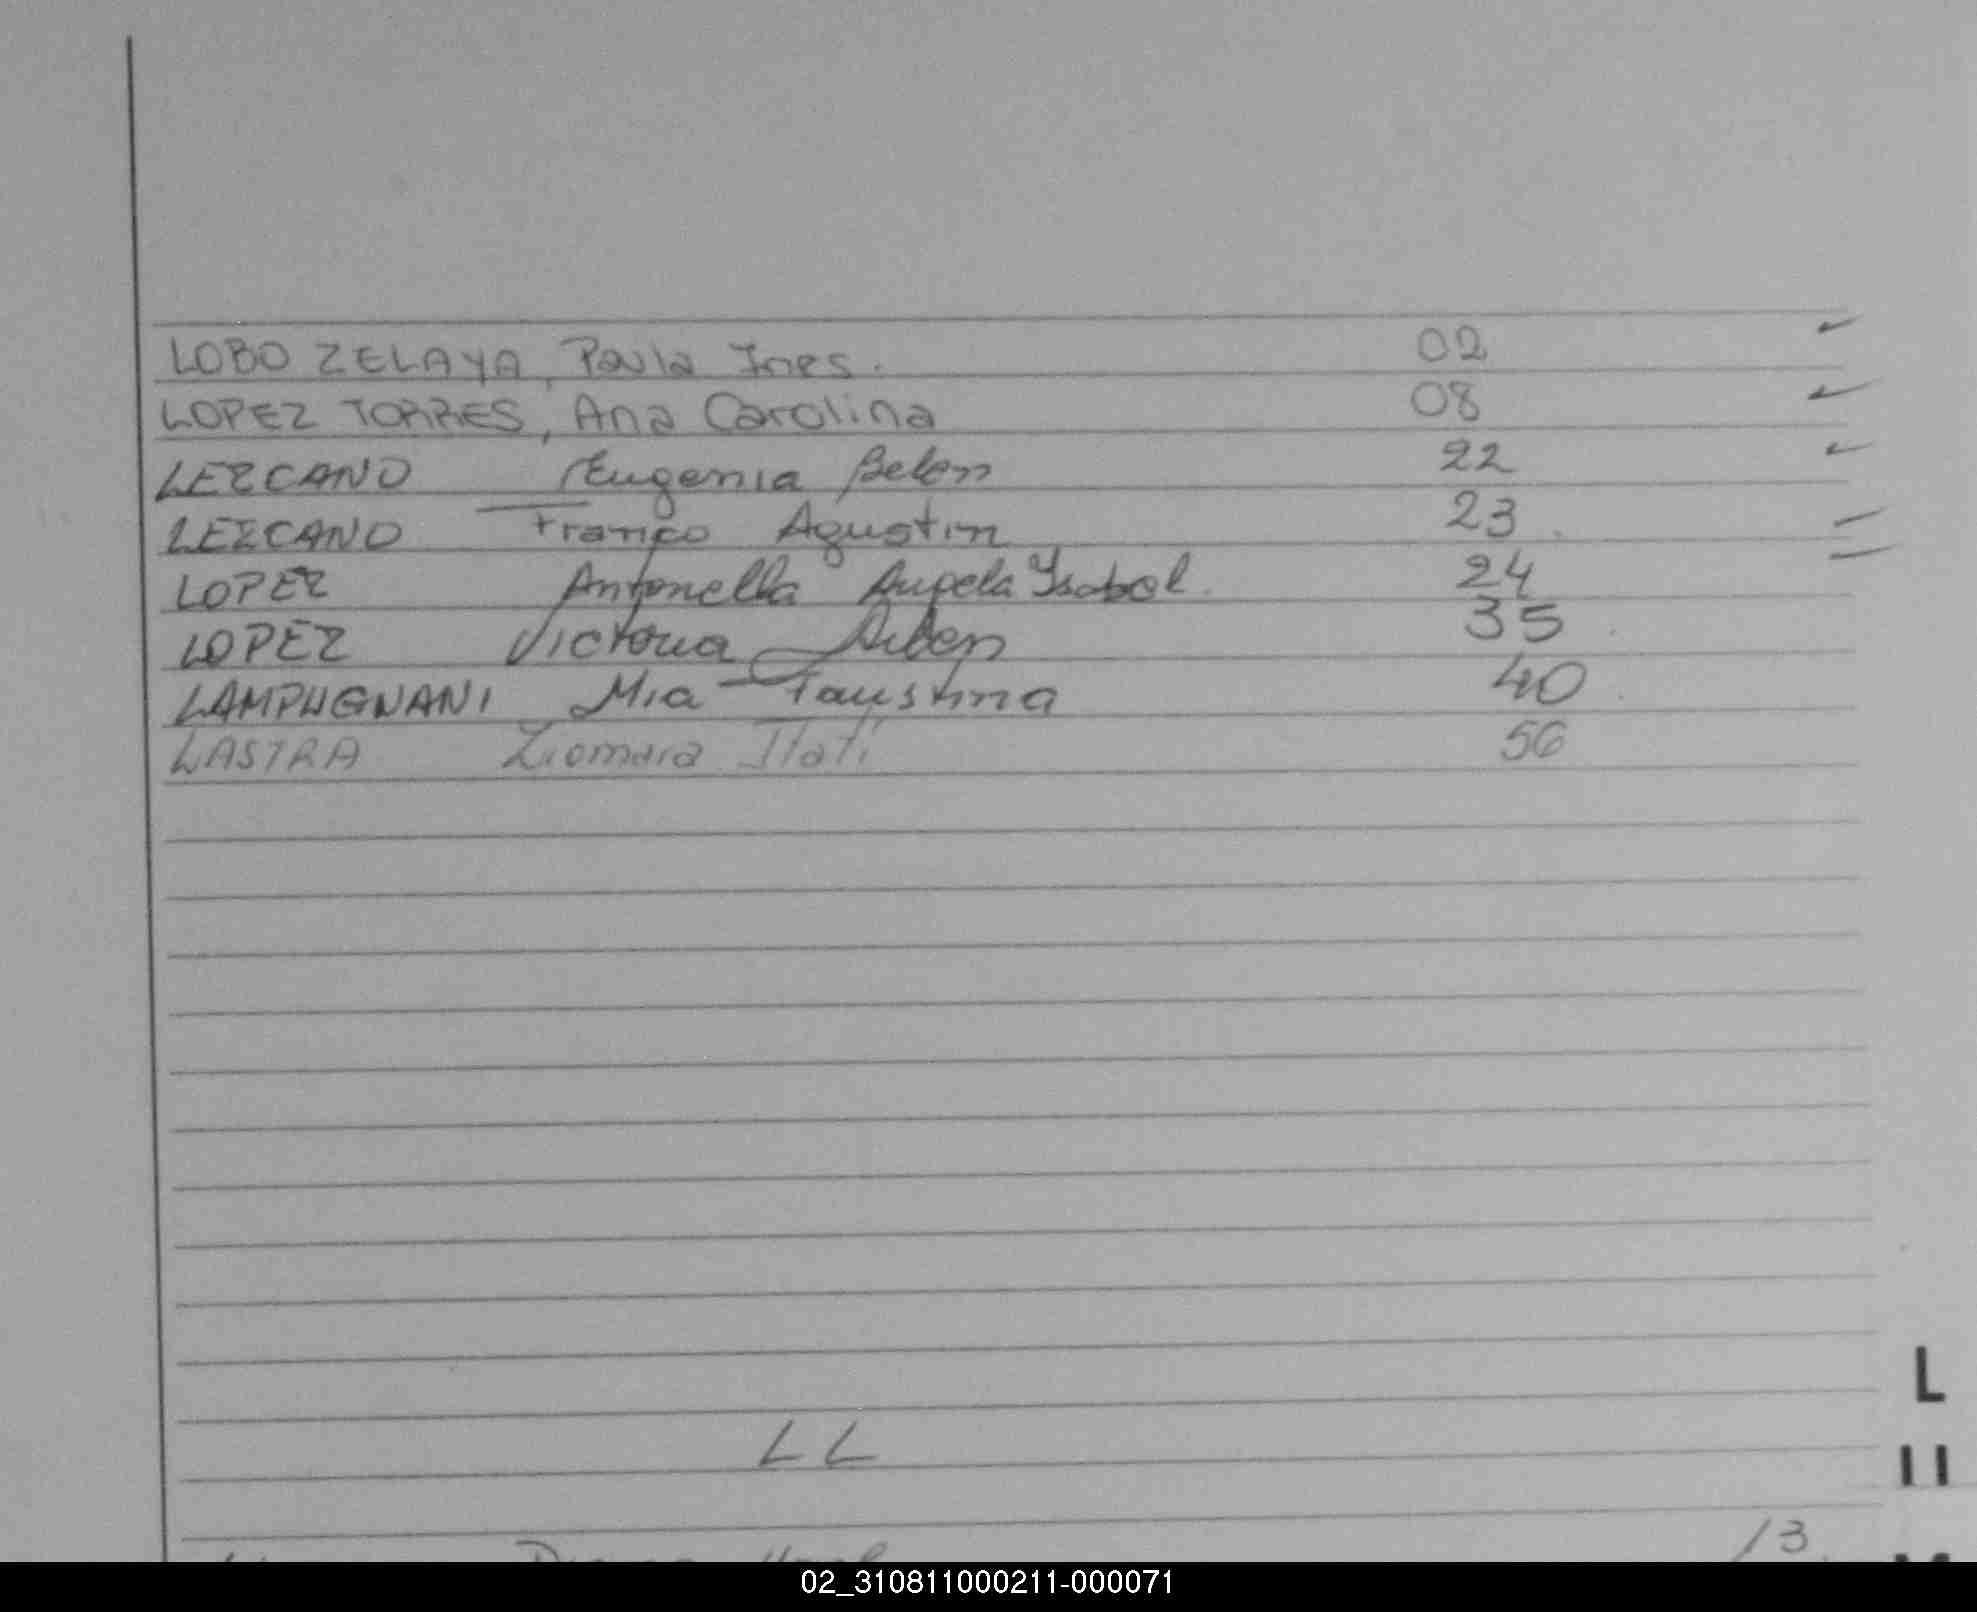 LOBO ZELAYA, Paula Ines. 02
LOPEZ TORRES, Ana Carolina 08
LEZCANO Eugenia Belen 22
LEZCANO Franco Agustin 23
LOPEZ Antonella Angela Ysabel. 24
LOPEZ Victoria 35
LAMPUGNANI Mia Faustina 40
LASTRA Ziomara Itati 56
L
LL
13
02_310811000211-000071